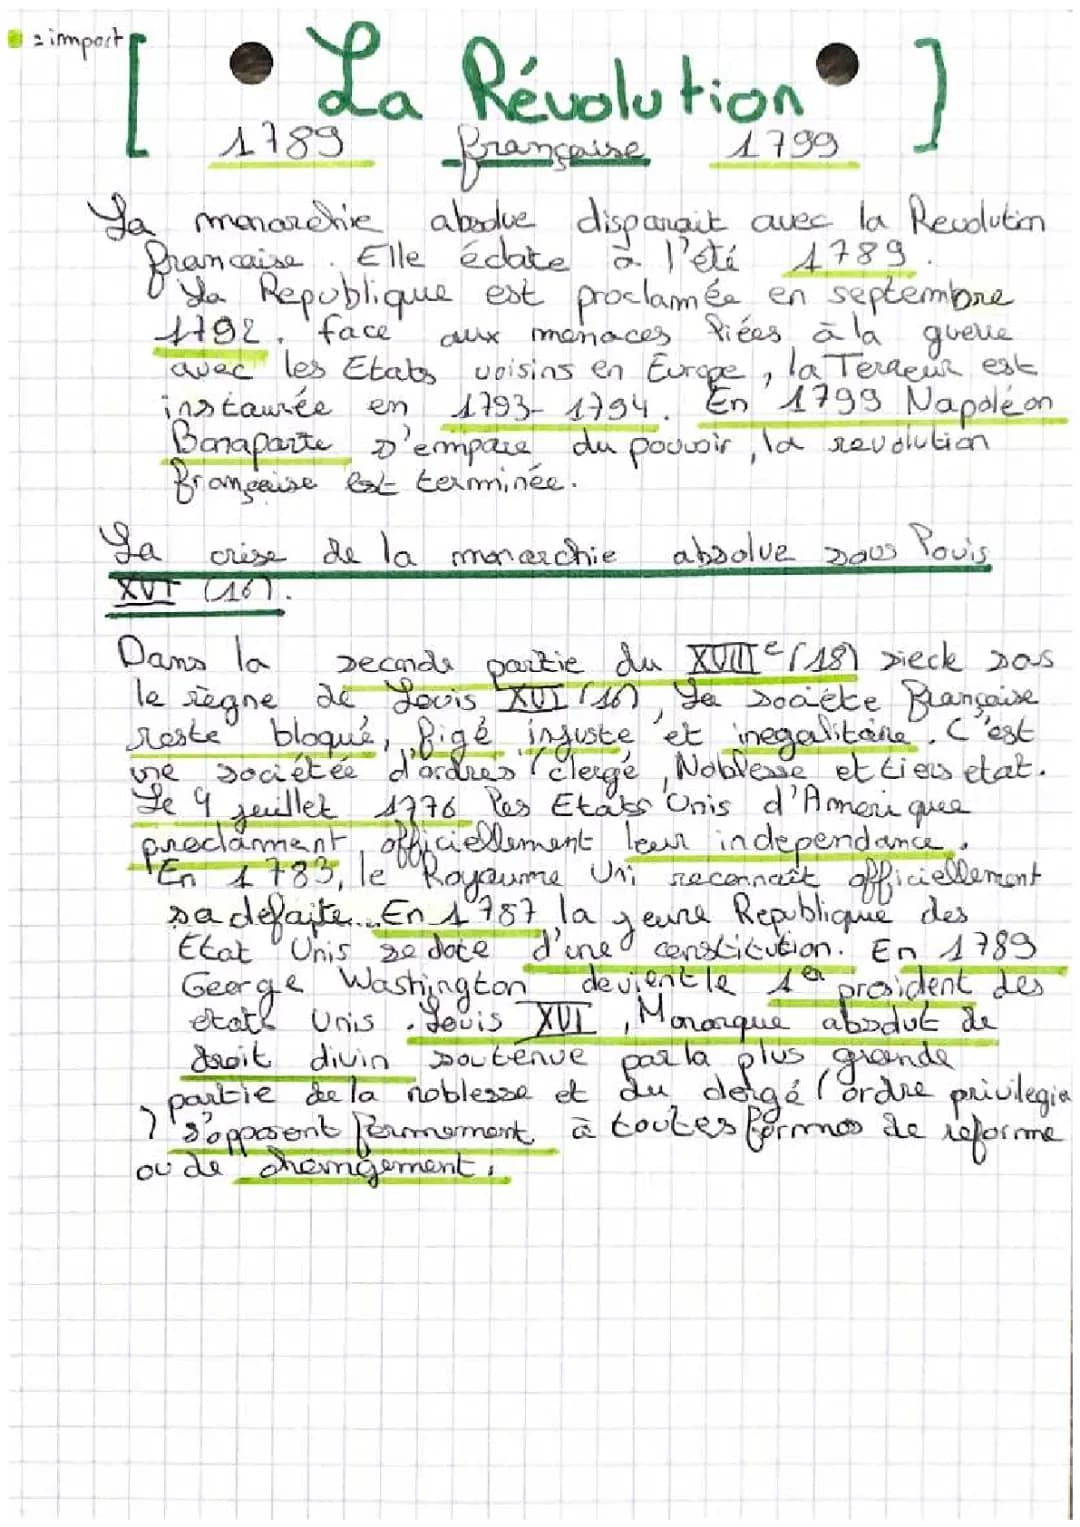 = import
[ La Révolution ]
1789 française 1799
La monarchie absolue disparait avec la Revolution
francaise. Elle éclate à l'été 1789.
La Republique est proclamée en septembre
1792. face aux menaces liées à la guerre
avec les Etats voisins en Europe, la Terreur est
instaurée en 1793-1794. En 1799 Napoléon
Bonaparte s'empare du pouvoir, la revolution
française est terminée.
La crise de la monarchie absolue sous Louis
XVI (16).
Dans la seconde partie du XVIIIe (18) siecle sous
le règne de Louis XVI (16), La sociéte Française
reste bloqué, figé injuste et inegalitaire. C'est
une sociétée d'ordres (clergé, Noblesse et tiers etat.
Le 4 juillet 1776 les Etats Unis d'Amerique
proclament officiellement leur independance.
En 1783, le Royaume Uni reconnaît officiellement
sa défaite... En 1787 la jeune Republique des
Etat Unis se dote d'une constitution. En 1789
George Washington devient le 1er president des
etats Unis. Louis XVI, Monarque absolut de
droit divin soutenue par la plus grande
partie de la noblesse et du clergé (ordre privilegie
) s'opposent fermement à toutes formes de reforme
ou de changement.